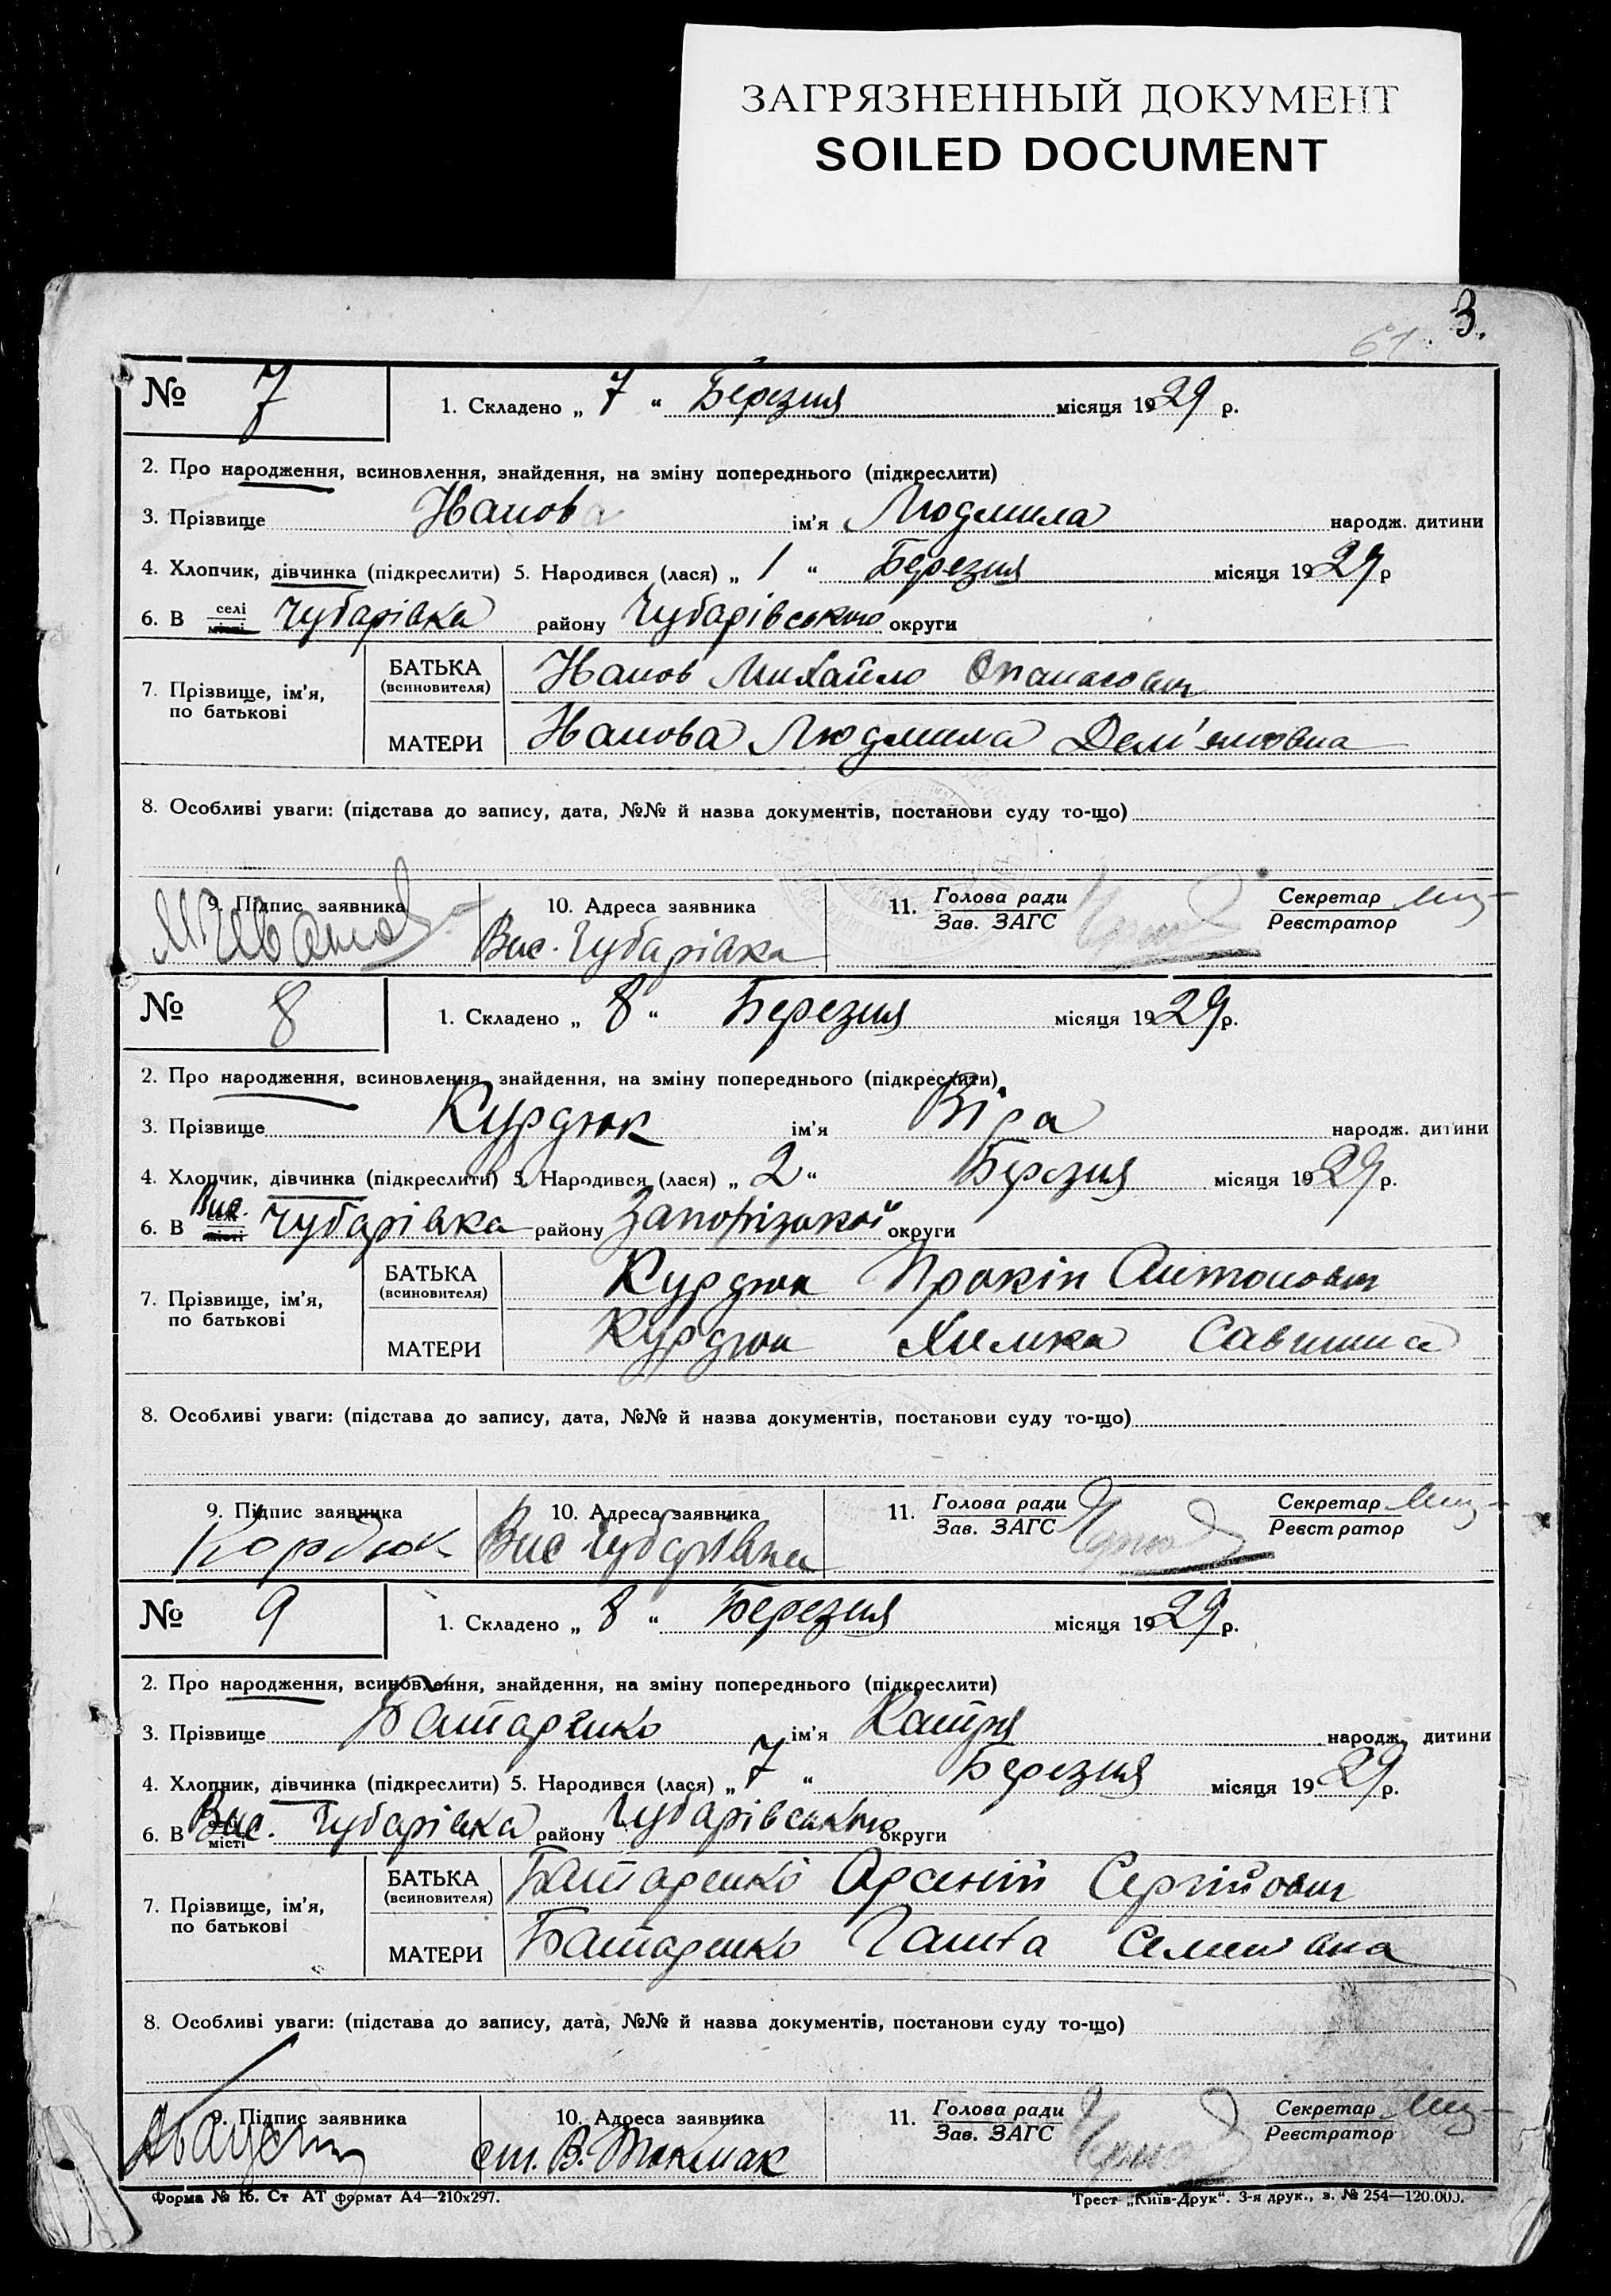 ЗАГРЯЗНЕННЫЙ ДОКУМЕНТ
SOILED DOCUMENT
3.
61
№ 7
1. Складено „ 7 “ Березня місяця 1929 р.
2. Про народження, всиновлення, знайдення, на зміну попереднього (підкреслити)
3. Прізвище Иванова ім'я Людмила народж. дитини
4. Хлопчик, дівчинка (підкреслити) 5. Народився (лася) „ 1 “ Березня місяця 1929 р
6. В селі місті Чубарівка району Чубарівського округи
7. Прізвище, ім'я, по батькові
БАТЬКА (всиновителя) Иванов Михайло Опанасович
МАТЕРИ Иванова Людмила Дем'яновна
8. Особливі уваги: (підстава до запису, дата, №№ й назва документів, постанови суду то-що)
9. Підпис заявника М. Иванов
10. Адреса заявника Вис. Чубарівка
11. Голова ради Зав. ЗАГС
Секретар Реєстратор
№ 8
1. Складено „ 8 “ Березня місяця 1929 р.
2. Про народження, всиновлення, знайдення, на зміну попереднього (підкреслити)
3. Прізвище Курдюк ім'я Віра народж. дитини
4. Хлопчик, дівчинка (підкреслити) 5. Народився (лася) „ 2 “ Березня місяця 1929 р.
6. В Вис. селі місті Чубарівка району Запорізької округи
7. Прізвище, ім'я, по батькові
БАТЬКА (всиновителя) Курдюк Прокіп Антонович
МАТЕРИ Курдюк Химка Савишна
8. Особливі уваги: (підстава до запису, дата, №№ й назва документів, постанови суду то-що)
9. Підпис заявника Кордюк
10. Адреса заявника Вис Чубарівка
11. Голова ради Зав. ЗАГС
Секретар Реєстратор
№ 9
1. Складено „ 8 “ Березня місяця 1929 р.
2. Про народження, всиновлення, знайдення, на зміну попереднього (підкреслити)
3. Прізвище Батаренко ім'я Катря народж. дитини
4. Хлопчик, дівчинка (підкреслити) 5. Народився (лася) „ 7 “ Березня місяця 1929 р.
6. В Вис. місті Чубарівка району Чубарівського округи
7. Прізвище, ім'я, по батькові
БАТЬКА (всиновителя) Батаренко Арсеній Сергійович
МАТЕРИ Батаренко Ганна Семеновна
8. Особливі уваги: (підстава до запису, дата, №№ й назва документів, постанови суду то-що)
9. Підпис заявника
10. Адреса заявника ст. В. Токмак
11. Голова ради Зав. ЗАГС
Секретар Реєстратор
Форма № 16. Ст АТ формат А4—210х297.
Трест „Київ-Друк“. 3-я друк., з. № 254—120.000.